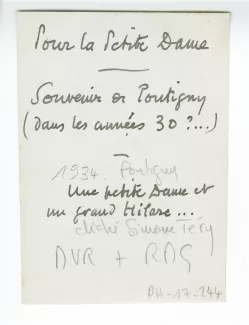 Pour la Petite Dame
Souvenir de Pontigny
(dans les années 30 ?...)
1934. Pontigny
Une petite Dame et
un grand Hilare...
cliché Simone Téry
MVR + RMG
PH-17-244